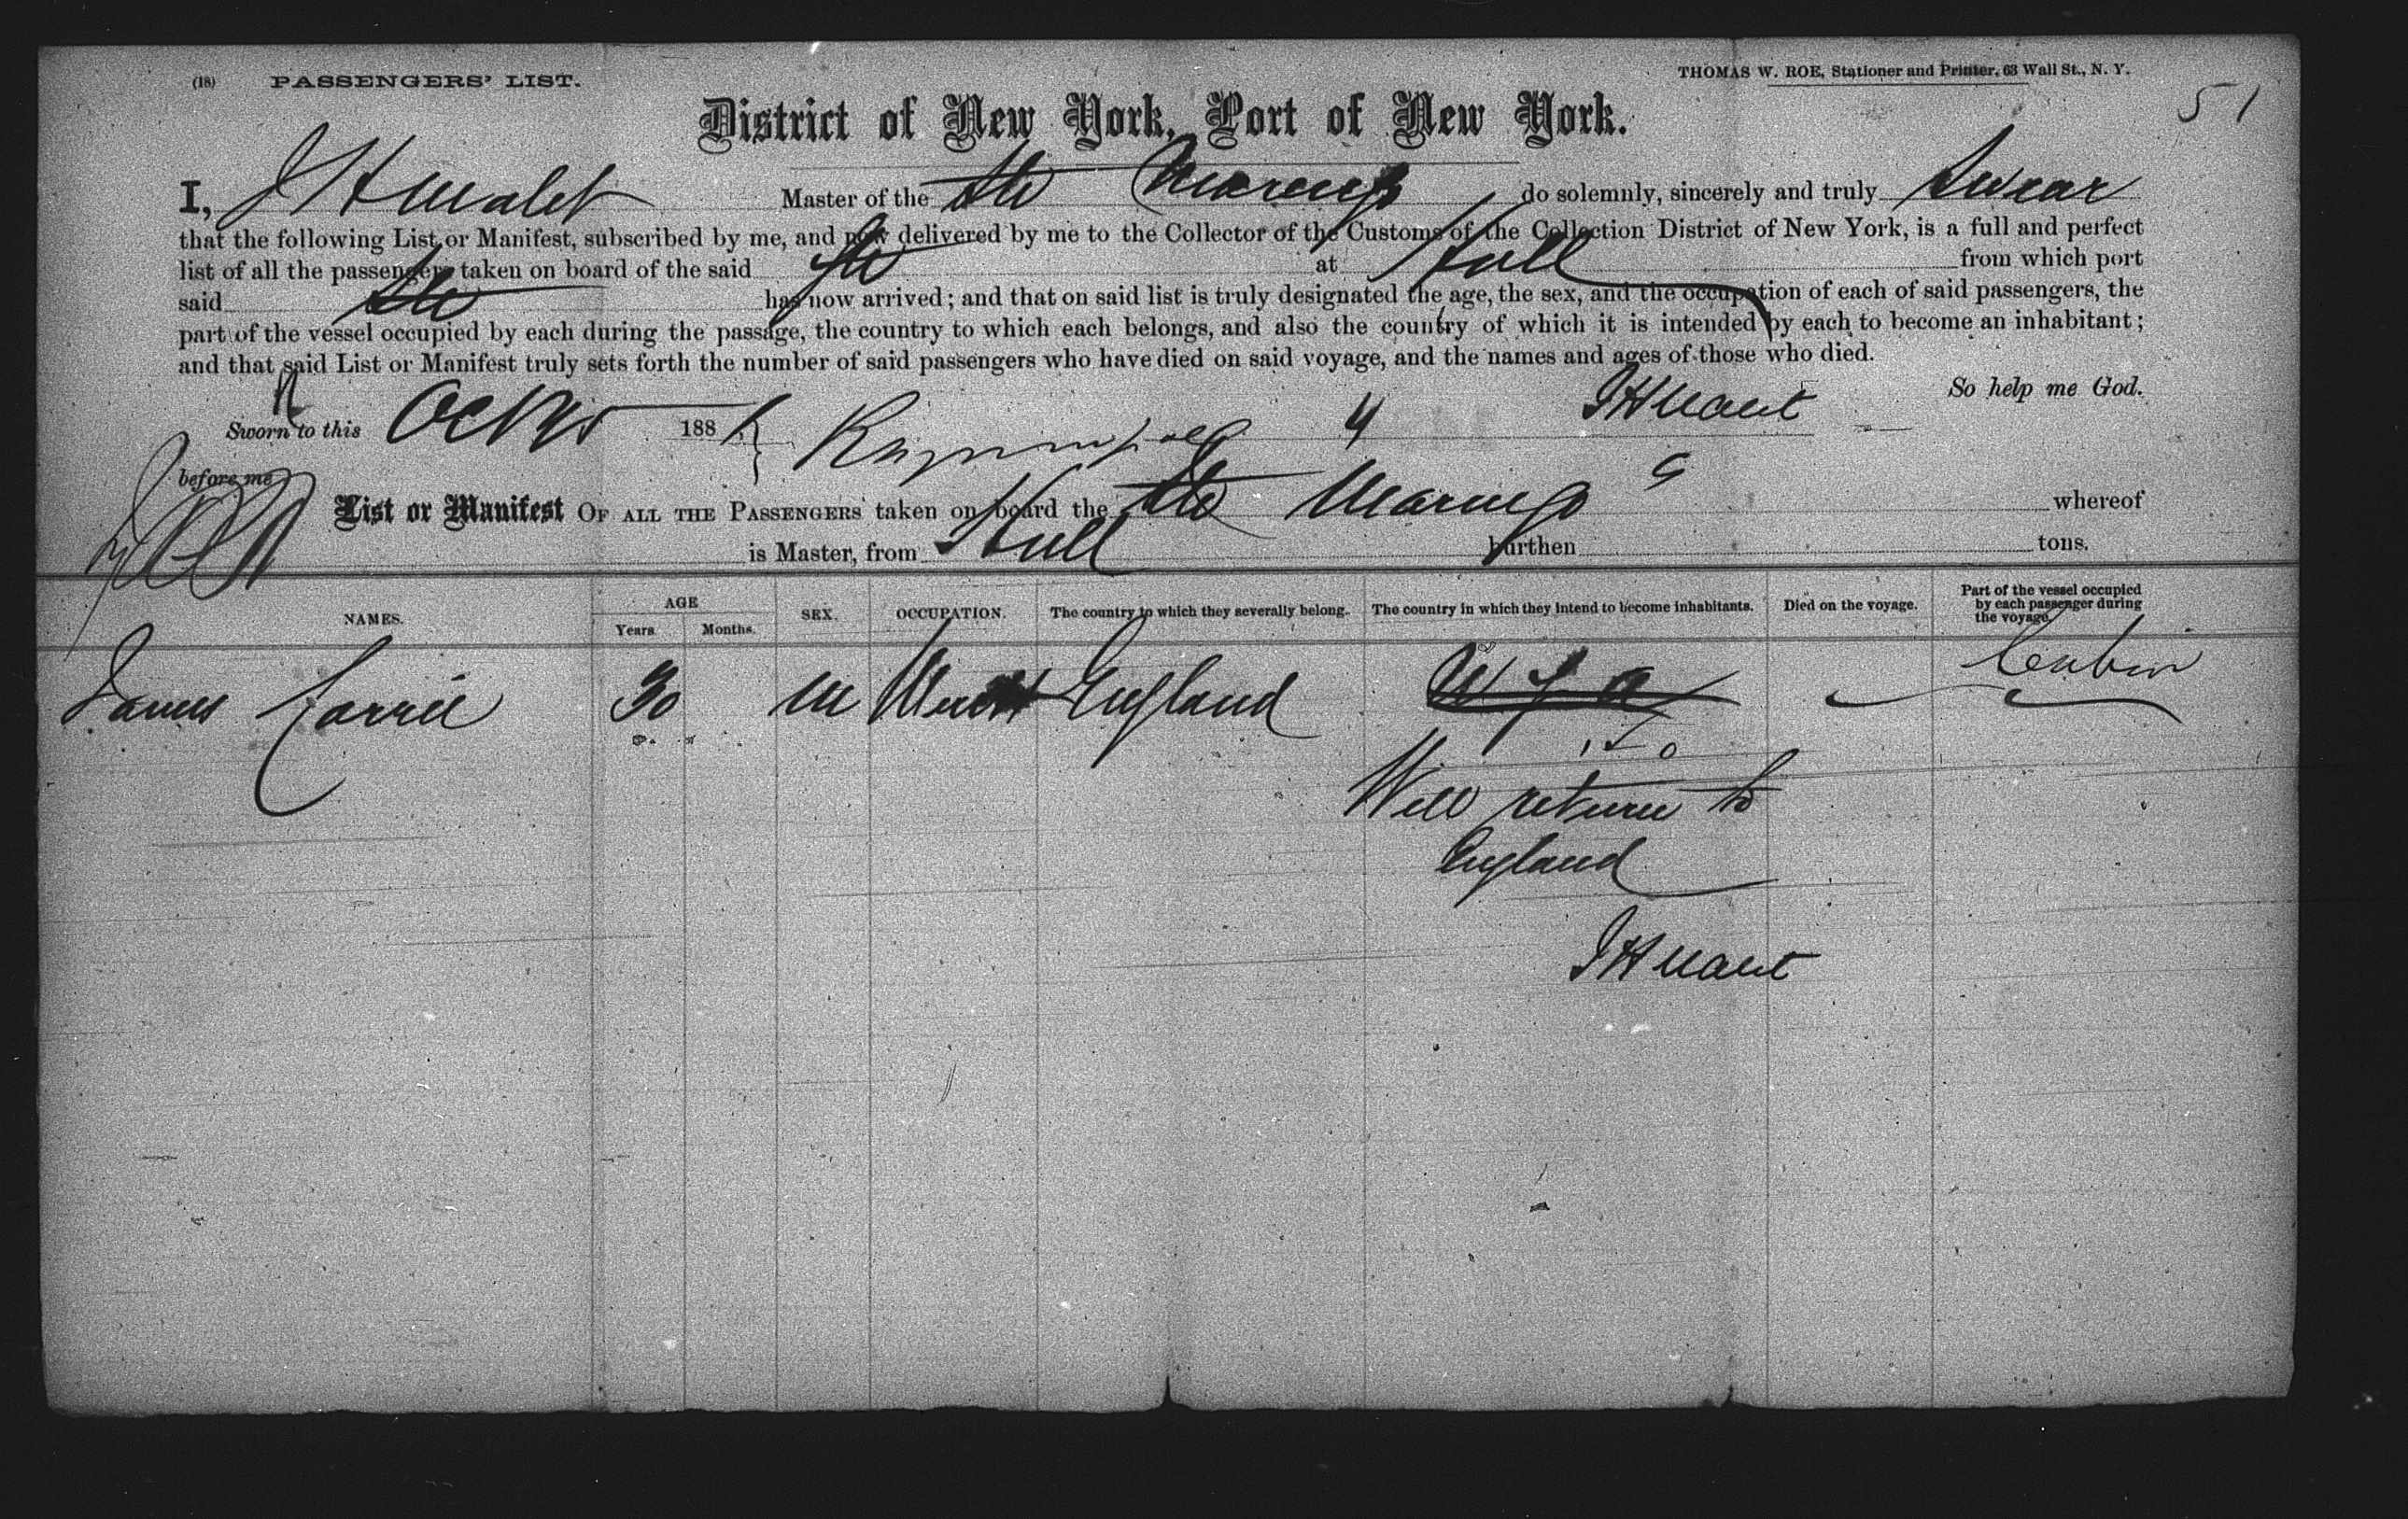 (18) PASSENGERS' LIST. THOMAS W. ROE, Stationer and Printer, 63 Wall St., N. Y.
51
District of New York, Port of New York.
I, J H Malet Master of the Str Marengo do solemnly, sincerely and truly Swear
that the following List or Manifest, subscribed by me, and now delivered by me to the Collector of the Customs of the Collection District of New York, is a full and perfect
list of all the passengers taken on board of the said Str at Hull from which port
said Str has now arrived; and that on said list is truly designated the age, the sex, and the occupation of each of said passengers, the
part of the vessel occupied by each during the passage, the country to which each belongs, and also the country of which it is intended by each to become an inhabitant;
and that said List or Manifest truly sets forth the number of said passengers who have died on said voyage, and the names and ages of those who died.
So help me God.
Sworn to this Oct 188 J H Malet
before me
List or Manifest OF ALL THE PASSENGERS taken on board the Str Marengo whereof
is Master, from Hull burthen tons.
NAMES. AGE Years. Months. SEX. OCCUPATION. The country to which they severally belong. The country in which they intend to become inhabitants. Died on the voyage. Part of the vessel occupied by each passenger during the voyage.
James 30 M England Cabin
Will return to
England
J H Malet